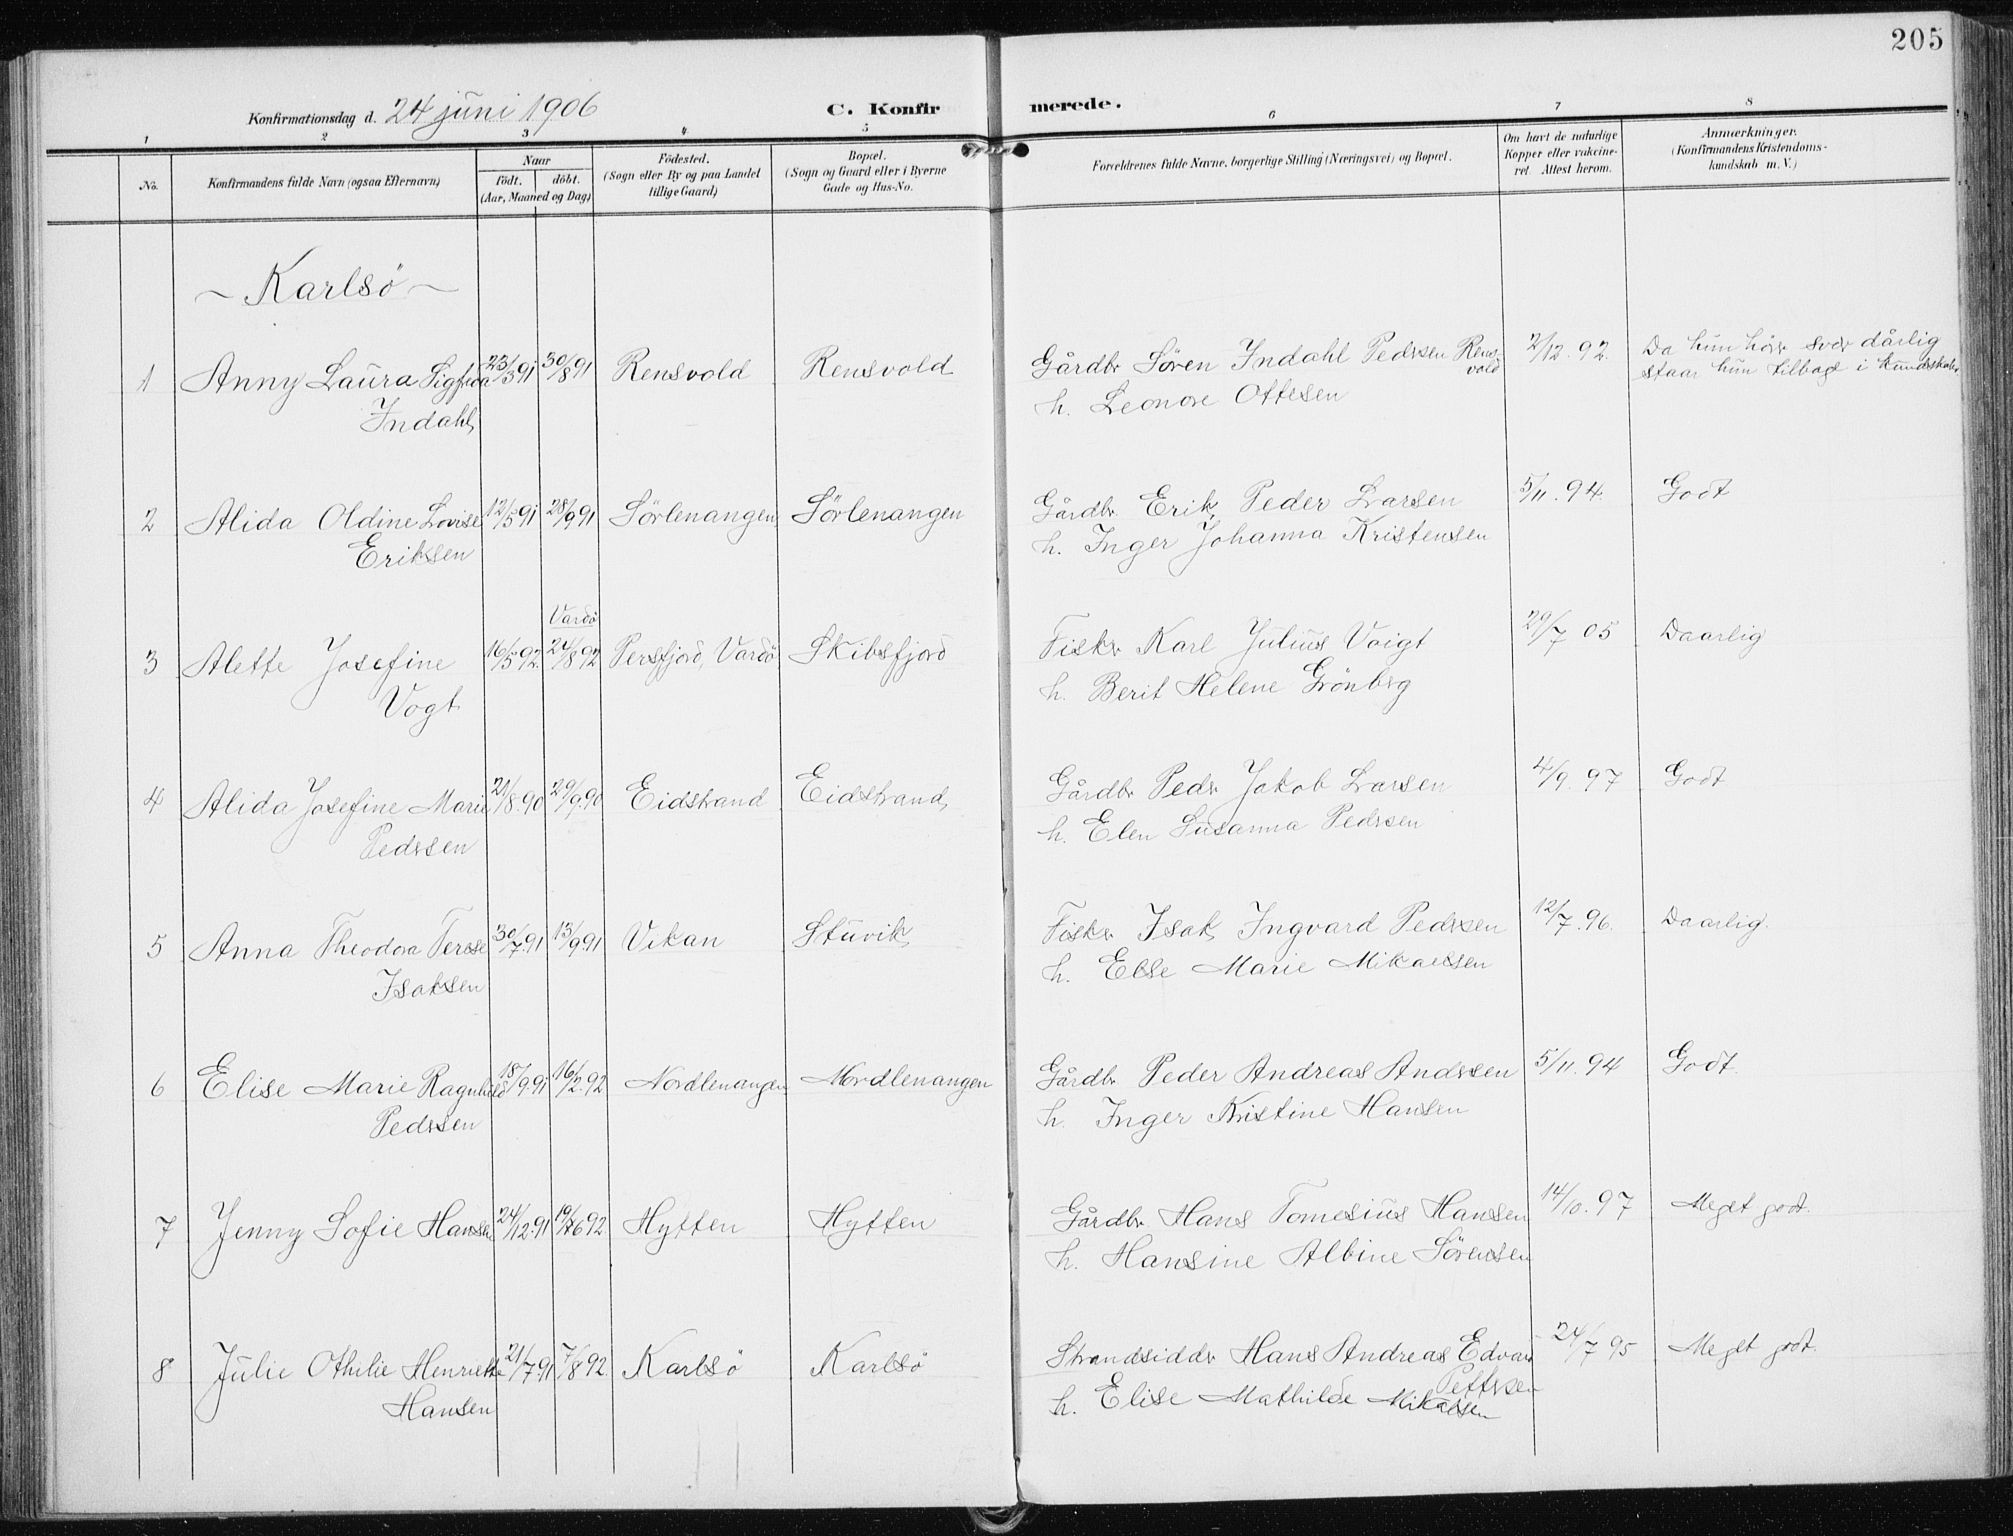 205
Konfirmationsdag d. 24 juni 1906
C. Konfirmerede.
1 2 3 4 5 6 7 8
No.
Konfirmandens fulde Navn (ogsaa Efternavn)
Naar
födt. döbt.
(Aar, Maaned og Dag)
Födested.
(Sogn eller By og paa Landet
tillige Gaard)
Bopæl.
(Sogn og Gaard eller i Byerne
Gade og Hus-No.
Forældrenes fulde Navne, borgerlige Stilling (Næringsvei) og Bopæl.
Om havt de naturlige
Kopper eller vakcine-
ret Attest herom.
Anmærkninger.
(Konfirmandens Kristendoms-
kundskab m. V.)
~ Karlsö ~
1 Anny Laura Sigfrida 23/3 91 30/8 91 Rensvold Rensvold Gårdbr Sören Indahl Pedersen Rens- 2/12. 92. Da hun hörer svær dårlig
vold
Indahl h. Leonore Ottesen staar hun tilbage i kundskaber
2 Alida Oldine Lovise 12/5 91 28/9 91 Sörlenangen Sörlenangen Gårdbr Erik Peder Larsen 5/11. 94. Godt
Eriksen h. Inger Johanna Kristensen
Vardö
3 Alette Josefine 16/5 92. 24/8 92 Persfjord, Vardö Skibsfjord Fisker Karl Julius Voigt 29/7 05 Daarlig
Vogt h. Berit Helene Grönberg
4 Alida Josefine Marie 21/8.90 29/9.90 Eidstrand Eidstrand Gårdbr Peder Jakob Larsen 4/9. 97 Godt
Pedersen h. Elen Susanna Pedersen
5 Anna Theodora Terese 30/7.91 13/9 91 Vikan Stuvik Fisker Isak Ingvard Pedersen 12/7. 96. Daarlig.
Isaksen h. Else Marie Mikaelsen
6 Elise Marie Ragnhild 18/9.91 16/2.92 Nordlenangen Nordlenangen Gårdbr Peder Andreas Andersen 5/11. 94 Godt.
Pedersen h. Inger Kristine Hansen
7 Jenny Sofie Hansen 24/12.91 92. Hytten Hytten Gårdbr. Hans Tomesius Hansen 14/10. 97 Meget godt.
h. Hansine Albine Sörensen
8 Julie Othilie Henriette 21/7.91 7/8 92. Karlsö Karlsö Strandsidder Hans Andreas Edvard 24/7 95 Meget godt.
Pettersen
Hansen h. Elise Mathilde Mikalsen